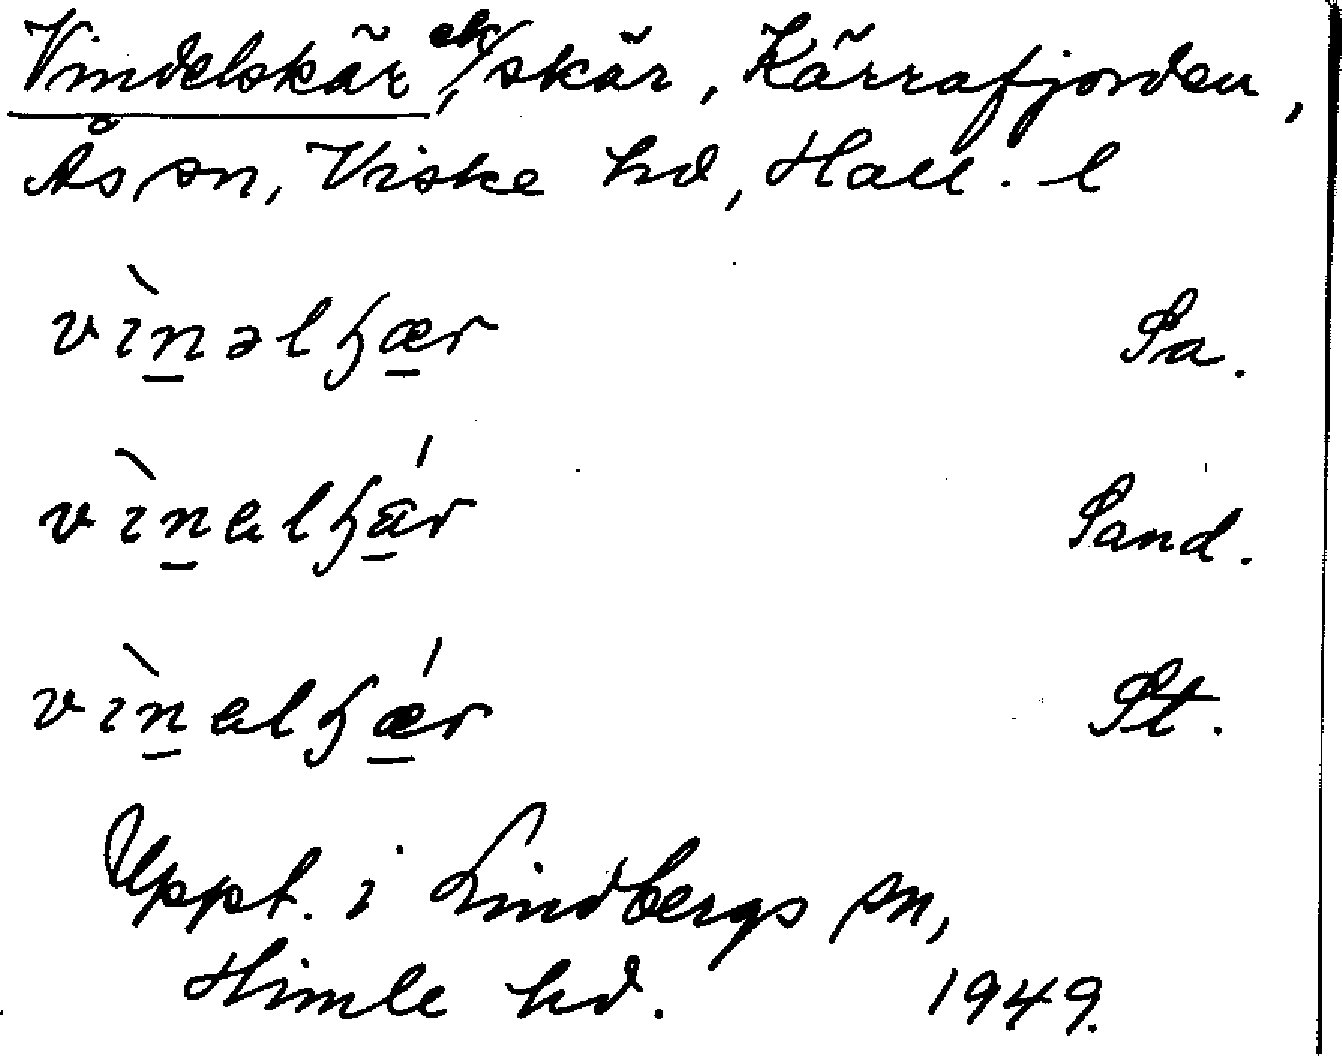 Vindelskär, ek/skär, Kärrafjorden,
Ås sn, Viske hd, Hall. l
vìnəlʂær Sa.
vìnalʂár Sand.
vìnalʂǽr St.
Uppt. i Lindbergs sn,
Himle hd. 1949.